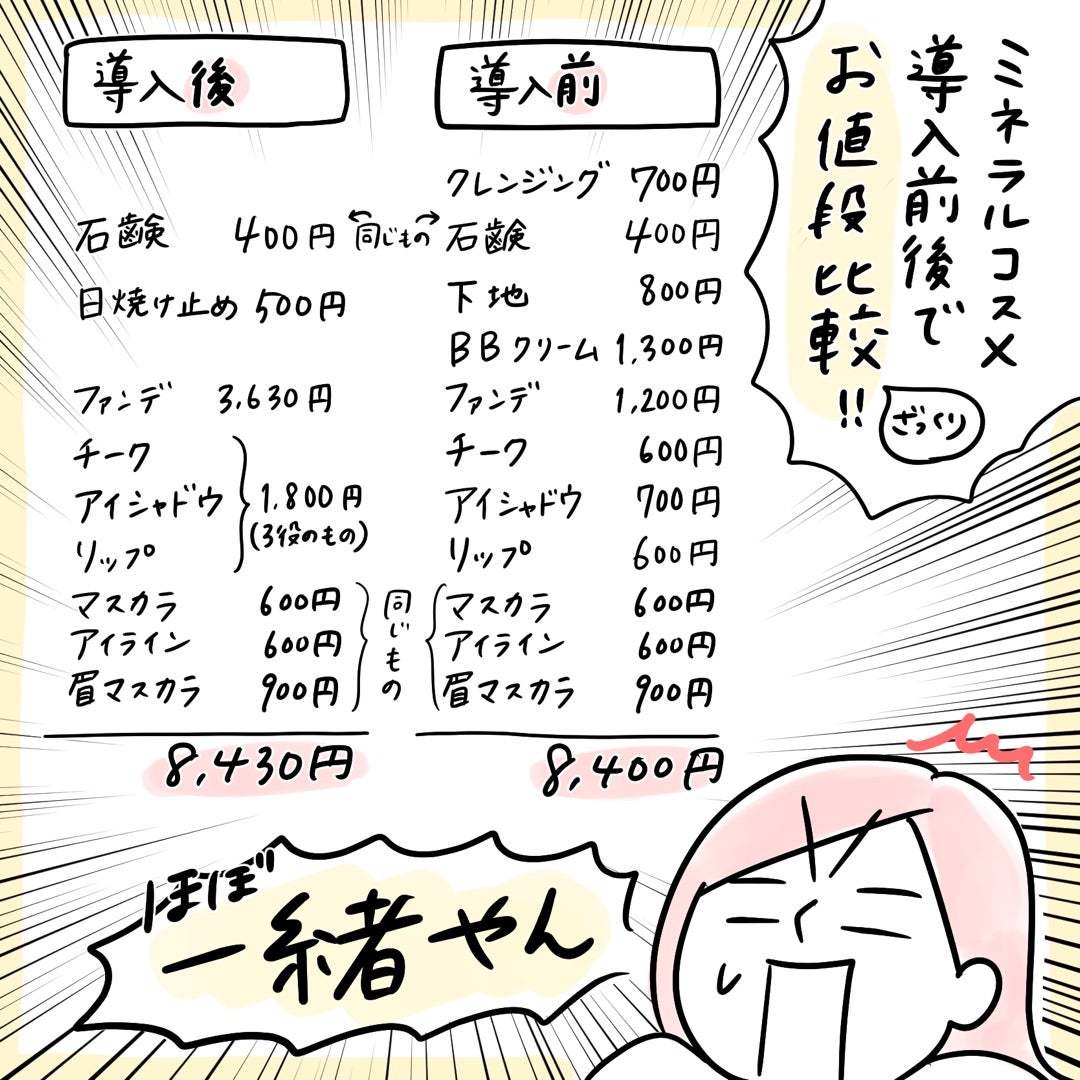 ミネラルコスメ
導入前後で
お値段比較!!
ざっくり
導入前
クレンジング 700円
石鹸 400円
下地 800円
BBクリーム 1,300円
ファンデ 1,200円
チーク 600円
アイシャドウ 700円
リップ 600円
マスカラ 600円
アイライン 600円
眉マスカラ 900円
8,400円
同じもの
同じもの
導入後
石鹸 400円
日焼け止め 500円
ファンデ 3,630円
チーク
アイシャドウ
リップ
1,800円
(3役のもの)
マスカラ 600円
アイライン 600円
眉マスカラ 900円
8,430円
ほぼ
一緒やん